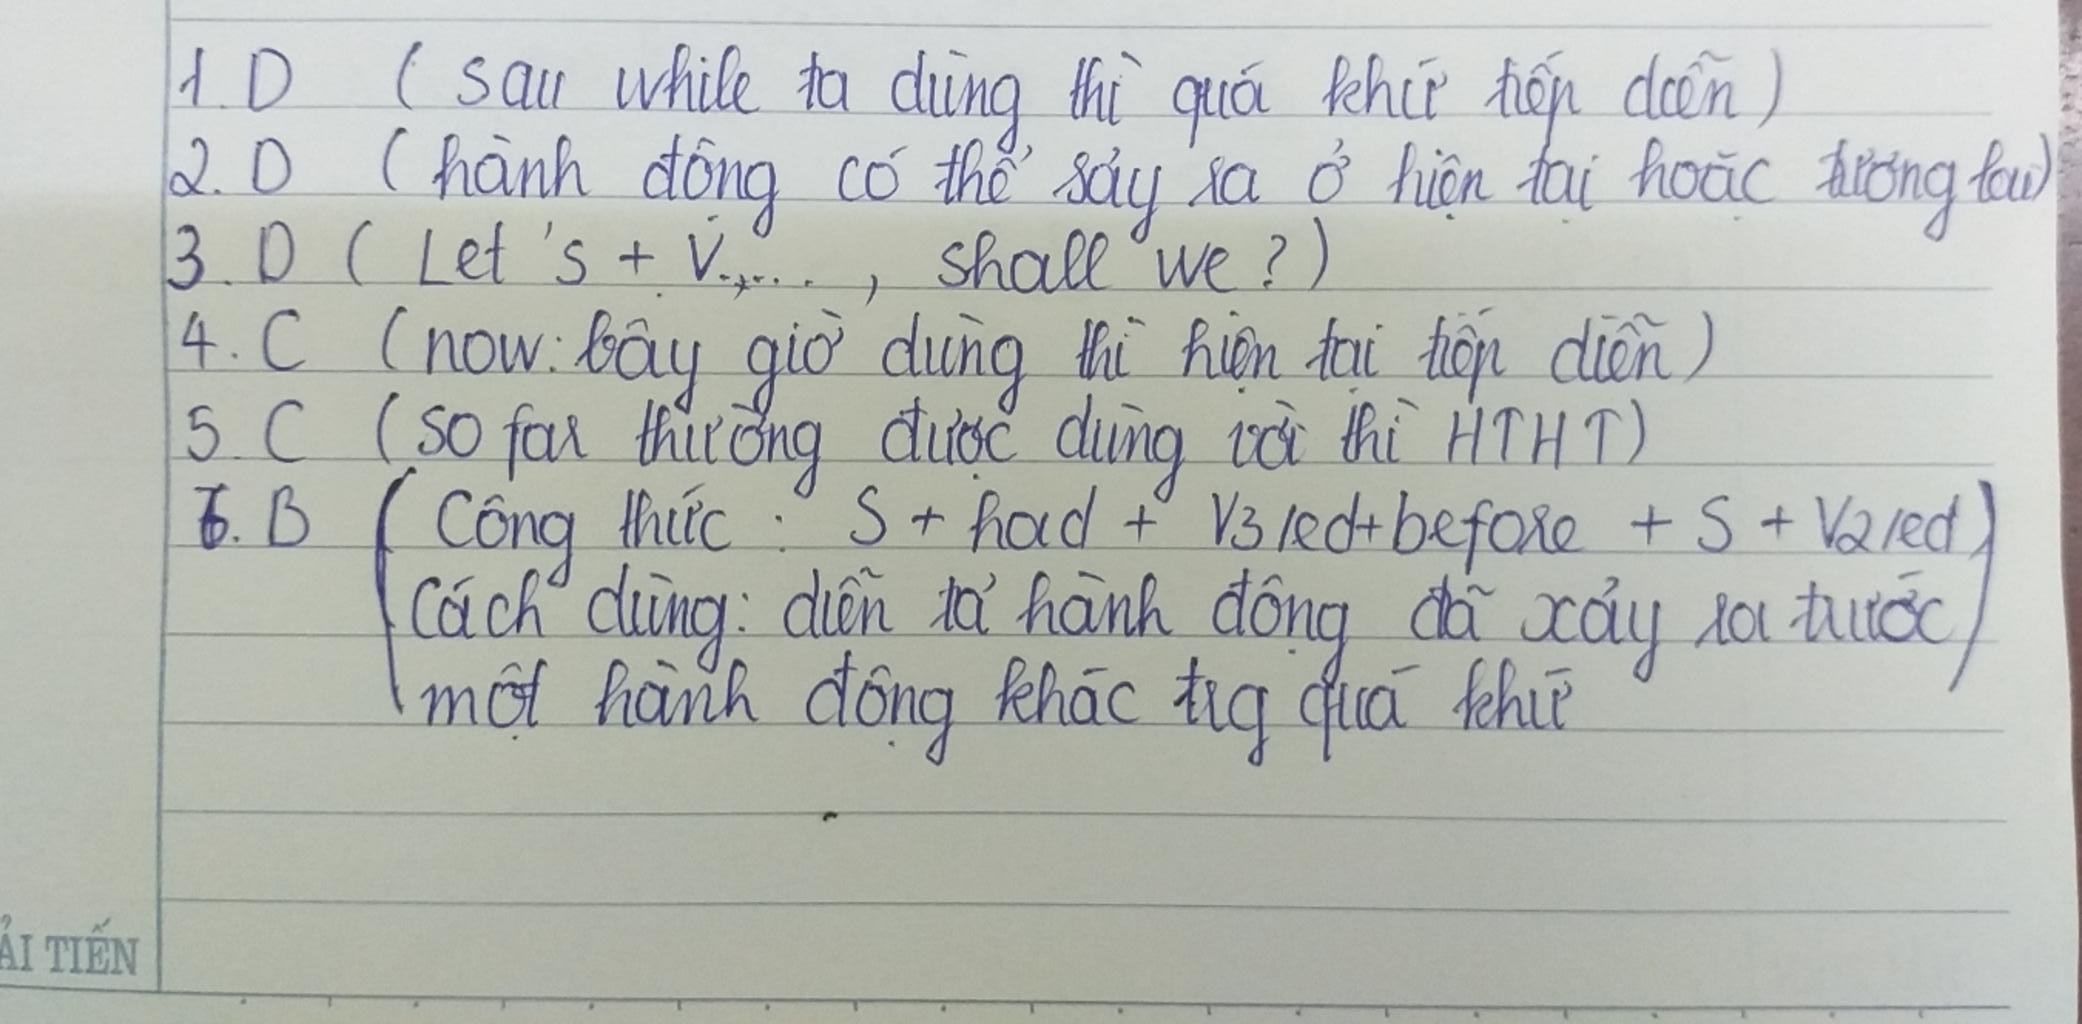 1. D ( sau while ta dùng thì quá khứ tiếp diễn)
2. D ( hành động có thể sảy ra ở hiện tại hoặc tương lai)
3. D ( Let's + V....., shall we?)
4. C (now: bây giờ dùng thì hiện tại tiếp diễn)
5. C (so far thường được dùng với thì HTHT)
6. B ( Công thức : S + had + V3/ed+before + S + V2/ed)
Cách dùng: diễn tả hành động đã xảy ra trước
một hành động khác trg quá khứ
ẢI TIẾN